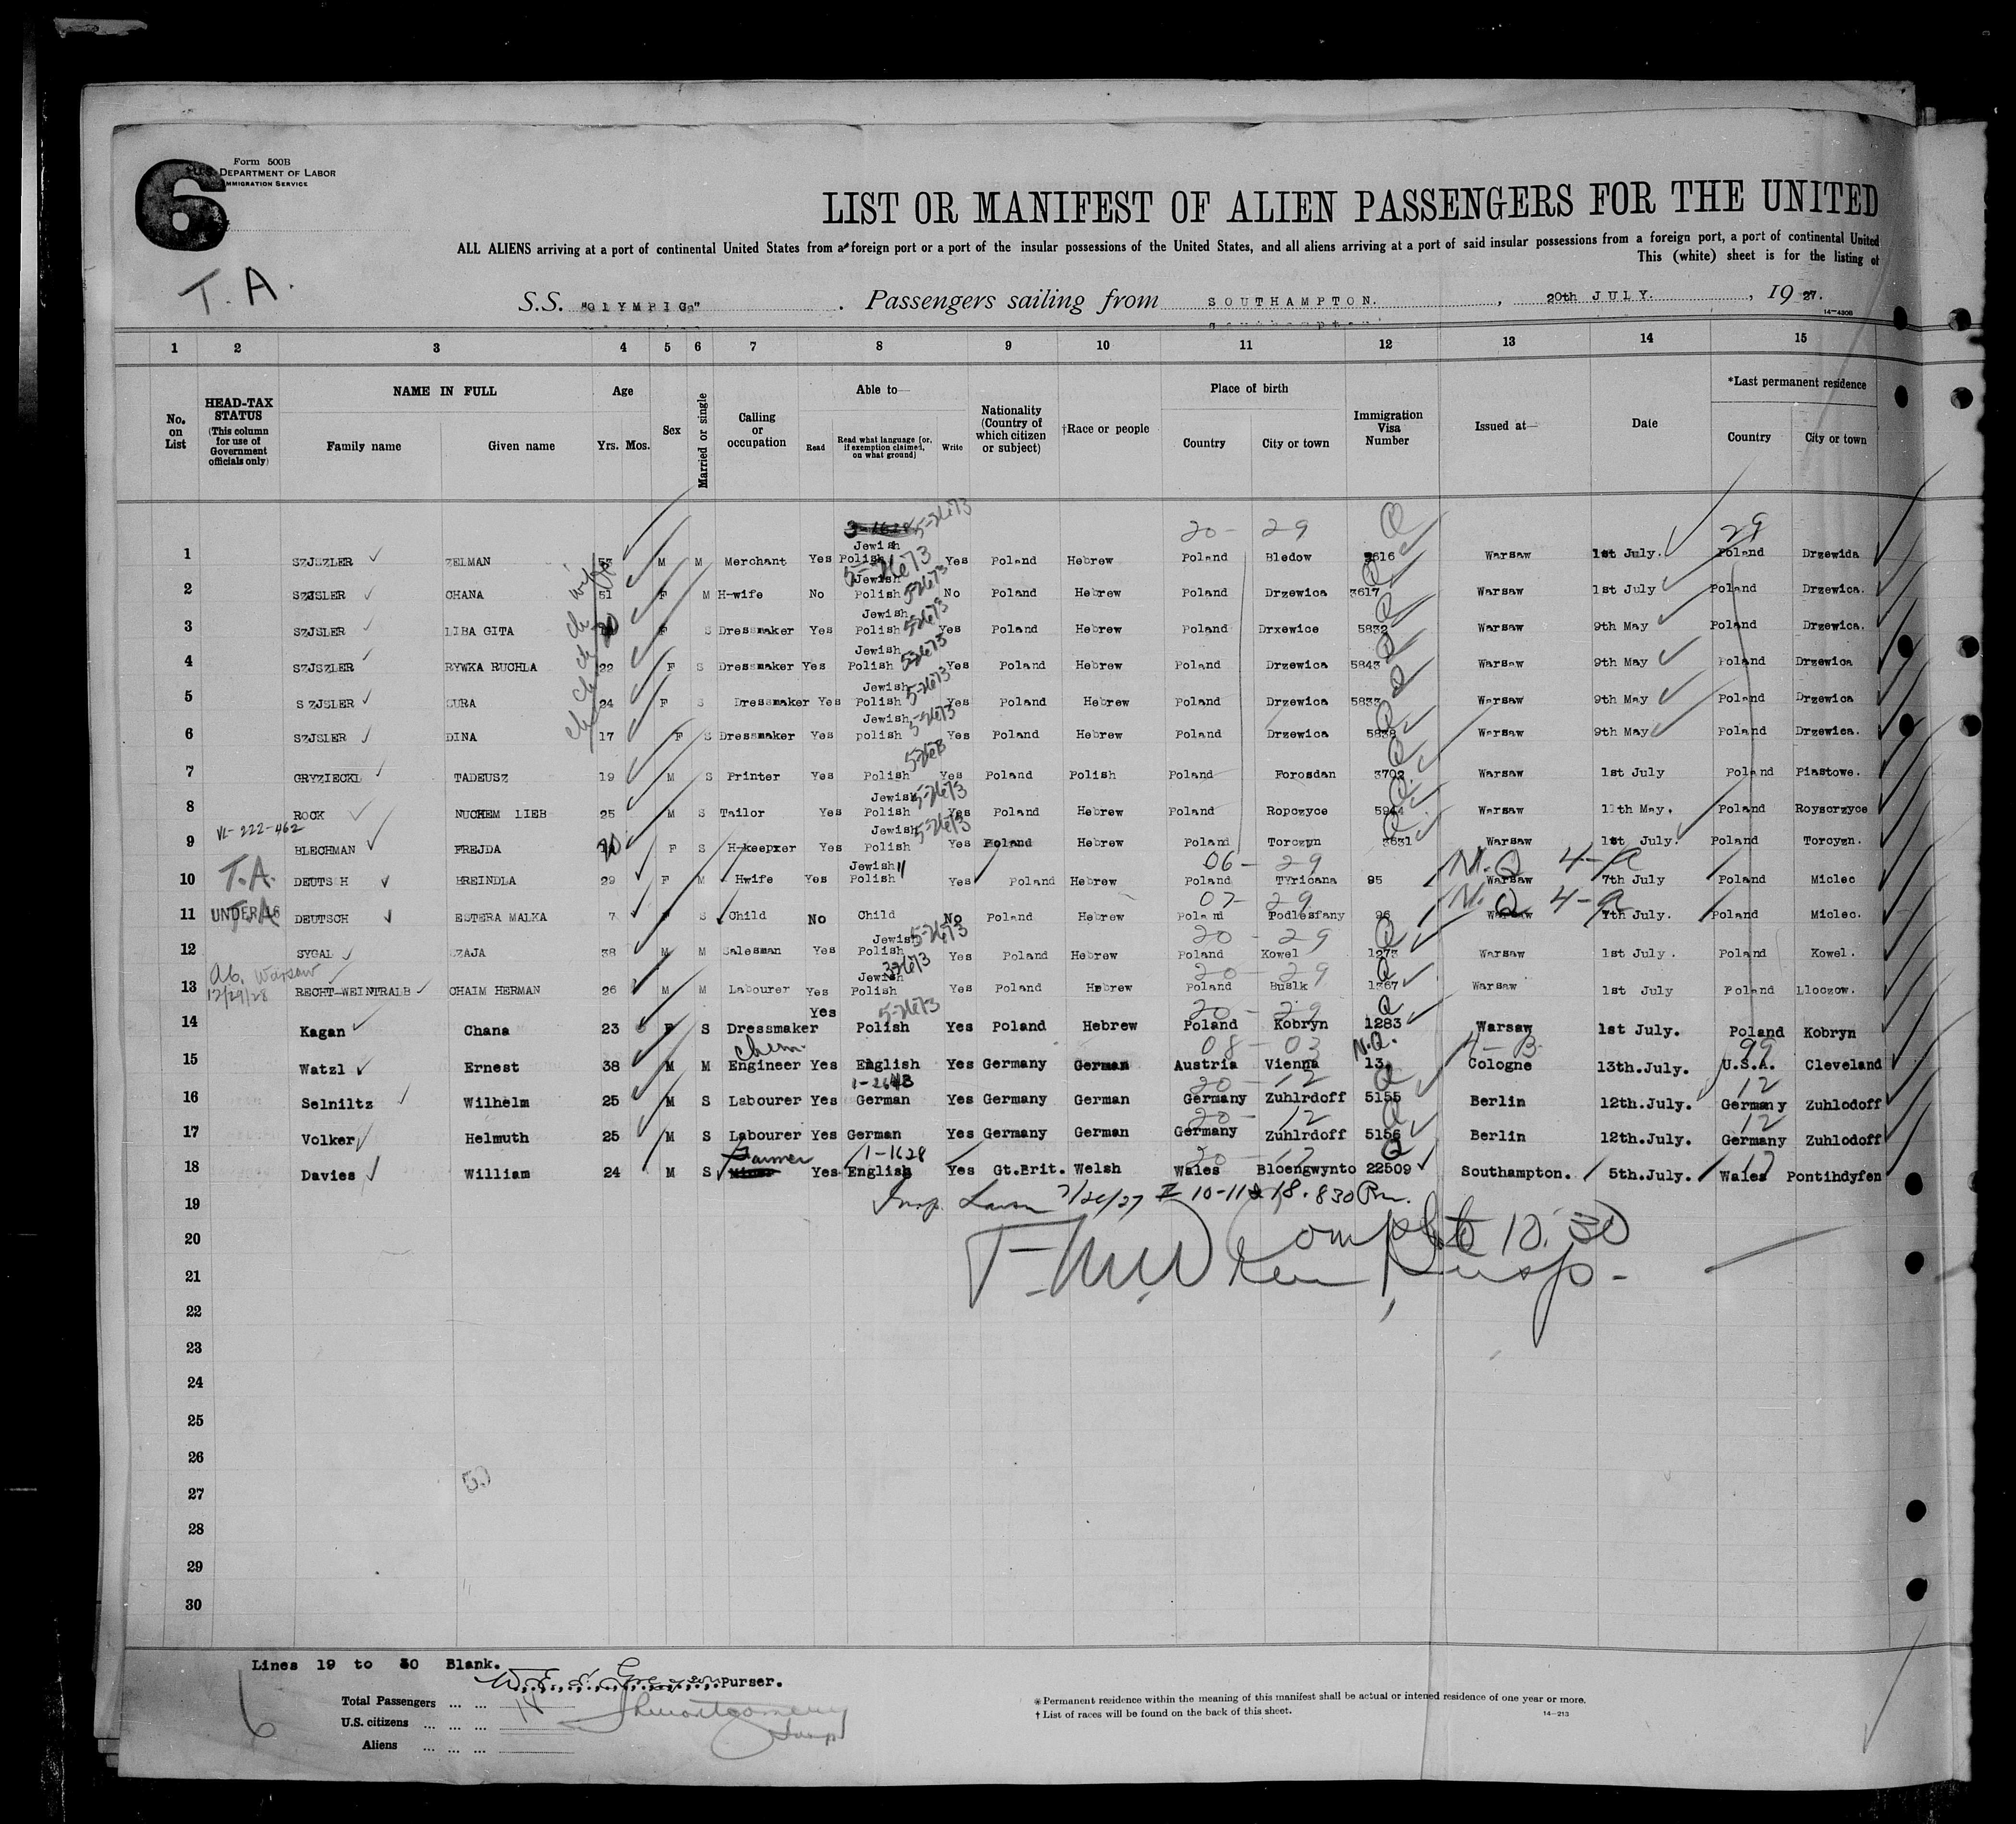 6
Form 500B
U.S. DEPARTMENT OF LABOR
IMMIGRATION SERVICE
T. A.
LIST OR MANIFEST OF ALIEN PASSENGERS FOR THE UNITED
ALL ALIENS arriving at a port of continental United States from a foreign port or a port of the insular possessions of the United States, and all aliens arriving at a port of said insular possessions from a foreign port, a port of continental United
This (white) sheet is for the listing of
S.S. "OLYMPIC" . Passengers sailing from SOUTHAMPTON. , 20th JULY. , 1927.
14—430B
1 2 3 4 5 6 7 8 9 10 11 12 13 14 15
No. on List
HEAD-TAX STATUS (This column for use of Government officials only)
NAME IN FULL Family name Given name
Age Yrs. Mos.
Sex
Married or single
Calling or occupation
Able to— Read Read what language [or, if exemption claimed, on what ground] Write
Nationality (Country of which citizen or subject)
†Race or people
Place of birth Country City or town
Immigration Visa Number
Issued at—
Date
*Last permanent residence Country City or town
20 - 29 Q 29
1 SZJSZLER ZELMAN 55 M M Merchant Yes Jewish Polish Yes Poland Hebrew Poland Bledow 3616 Warsaw 1st July. Poland Drzewida
2 SZJSLER CHANA wife 51 F M H-wife No Jewish Polish 5-2673 No Poland Hebrew Poland Drzewica 3617 Q Warsaw 1st July Poland Drzewica.
3 SZJSLER LIBA GITA ch 20 F S Dressmaker Yes Jewish Polish 5-2673 Yes Poland Hebrew Poland Drxewice 5832 Q Warsaw 9th May Poland Drzewica.
4 SZJSZLER RYWKA RUCHLA ch 22 F S Dressmaker Yes Jewish Polish 5-2673 Yes Poland Hebrew Poland Drzewica 5843 Q Warsaw 9th May Poland Drzewica
5 SZJSLER SURA ch 24 F S Dressmaker Yes Jewish Polish 5-2673 Yes Poland Hebrew Poland Drzewica 5833 Q Warsaw 9th May Poland Drzewica
6 SZJSLER DINA ch 17 F S Dressmaker Yes Jewish polish 5-2673 Yes Poland Hebrew Poland Drzewica 5838 Q Warsaw 9th May Poland Drzewica.
7 GRYZIECKI TADEUSZ 19 M S Printer Yes Polish Yes Poland Polish Poland Forosdan 3702 Q Warsaw 1st July Poland Piastowe.
8 ROCK NUCHEM LIEB 25 M S Tailor Yes Jewish Polish 5-2673 Yes Poland Hebrew Poland Ropczyce 5944 Q Warsaw 11th May. Poland Roysorzyce
VL-222-462
9 BLECHMAN FREJDA 20 F S H-keepxer Yes Jewish Polish 5-2673 Yes Poland Hebrew Poland Torczyn 3631 Q Warsaw 1st July. Poland Torcyzn.
06 - 29 N.Q 4-a
10 T.A. DEUTSH BREINDLA 29 F M Hwife Yes Jewish Polish Yes Poland Hebrew Poland TYricana 95 Warsaw 7th July Poland Mielec
07 - 29 N.Q 4-a
11 UNDER 16 T.A DEUTSCH ESTERA MALKA 7 F S Child No Child No Poland Hebrew Poland Podlesfany 96 Warsaw 7th July. Poland Mielec.
20 - 29 Q
12 SYGAL SZAJA 38 M M Salesman Yes Jewish Polish 5-2673 Yes Poland Hebrew Poland Kowel 1273 Warsaw 1st July. Poland Kowel.
Ab. Warsaw 12/29/28 20 - 29 Q
13 RECHT-WEINTRALB CHAIM HERMAN 26 M M Labourer Yes Jewish Polish Yes Poland Hebrew Poland Buslk 1367 Warsaw 1st July Poland Lloczow.
5-2673 20 - 29 Q
14 Kagan Chana 23 F S Dressmaker Yes Polish Yes Poland Hebrew Poland Kobryn 1283 Warsaw 1st July. Poland Kobryn
chem. 08 - 03 N.Q. 4-B 99
15 Watzl Ernest 38 M M Engineer Yes English Yes Germany German Austria Vienna 13 Cologne 13th.July. U.S.A. Cleveland
20 - 12 Q 12
16 Selniltz Wilhelm 25 M S Labourer Yes German Yes Germany German Germany Zuhlrdoff 5155 Berlin 12th.July. Germany Zuhlodoff
20 - 12 Q 12
17 Volker Helmuth 25 M S Labourer Yes German Yes Germany German Germany Zuhlrdoff 5156 Berlin 12th.July. Germany Zuhlodoff
Farmer 1-1628 Q
18 Davies William 24 M S Miner Yes English Yes Gt.Brit. Welsh Wales Bloengwynto 22509 Southampton. 5th.July. Wales Pontihdyfen
19
20 Complete 10.30
21
22
23
24
25
26
27
28
29
30
Lines 19 to 30 Blank.
Purser.
Total Passengers ... ...
U.S. citizens ... ... ...
Aliens ... ... ...
*Permanent residence within the meaning of this manifest shall be actual or intened residence of one year or more.
† List of races will be found on the back of this sheet.
14—213